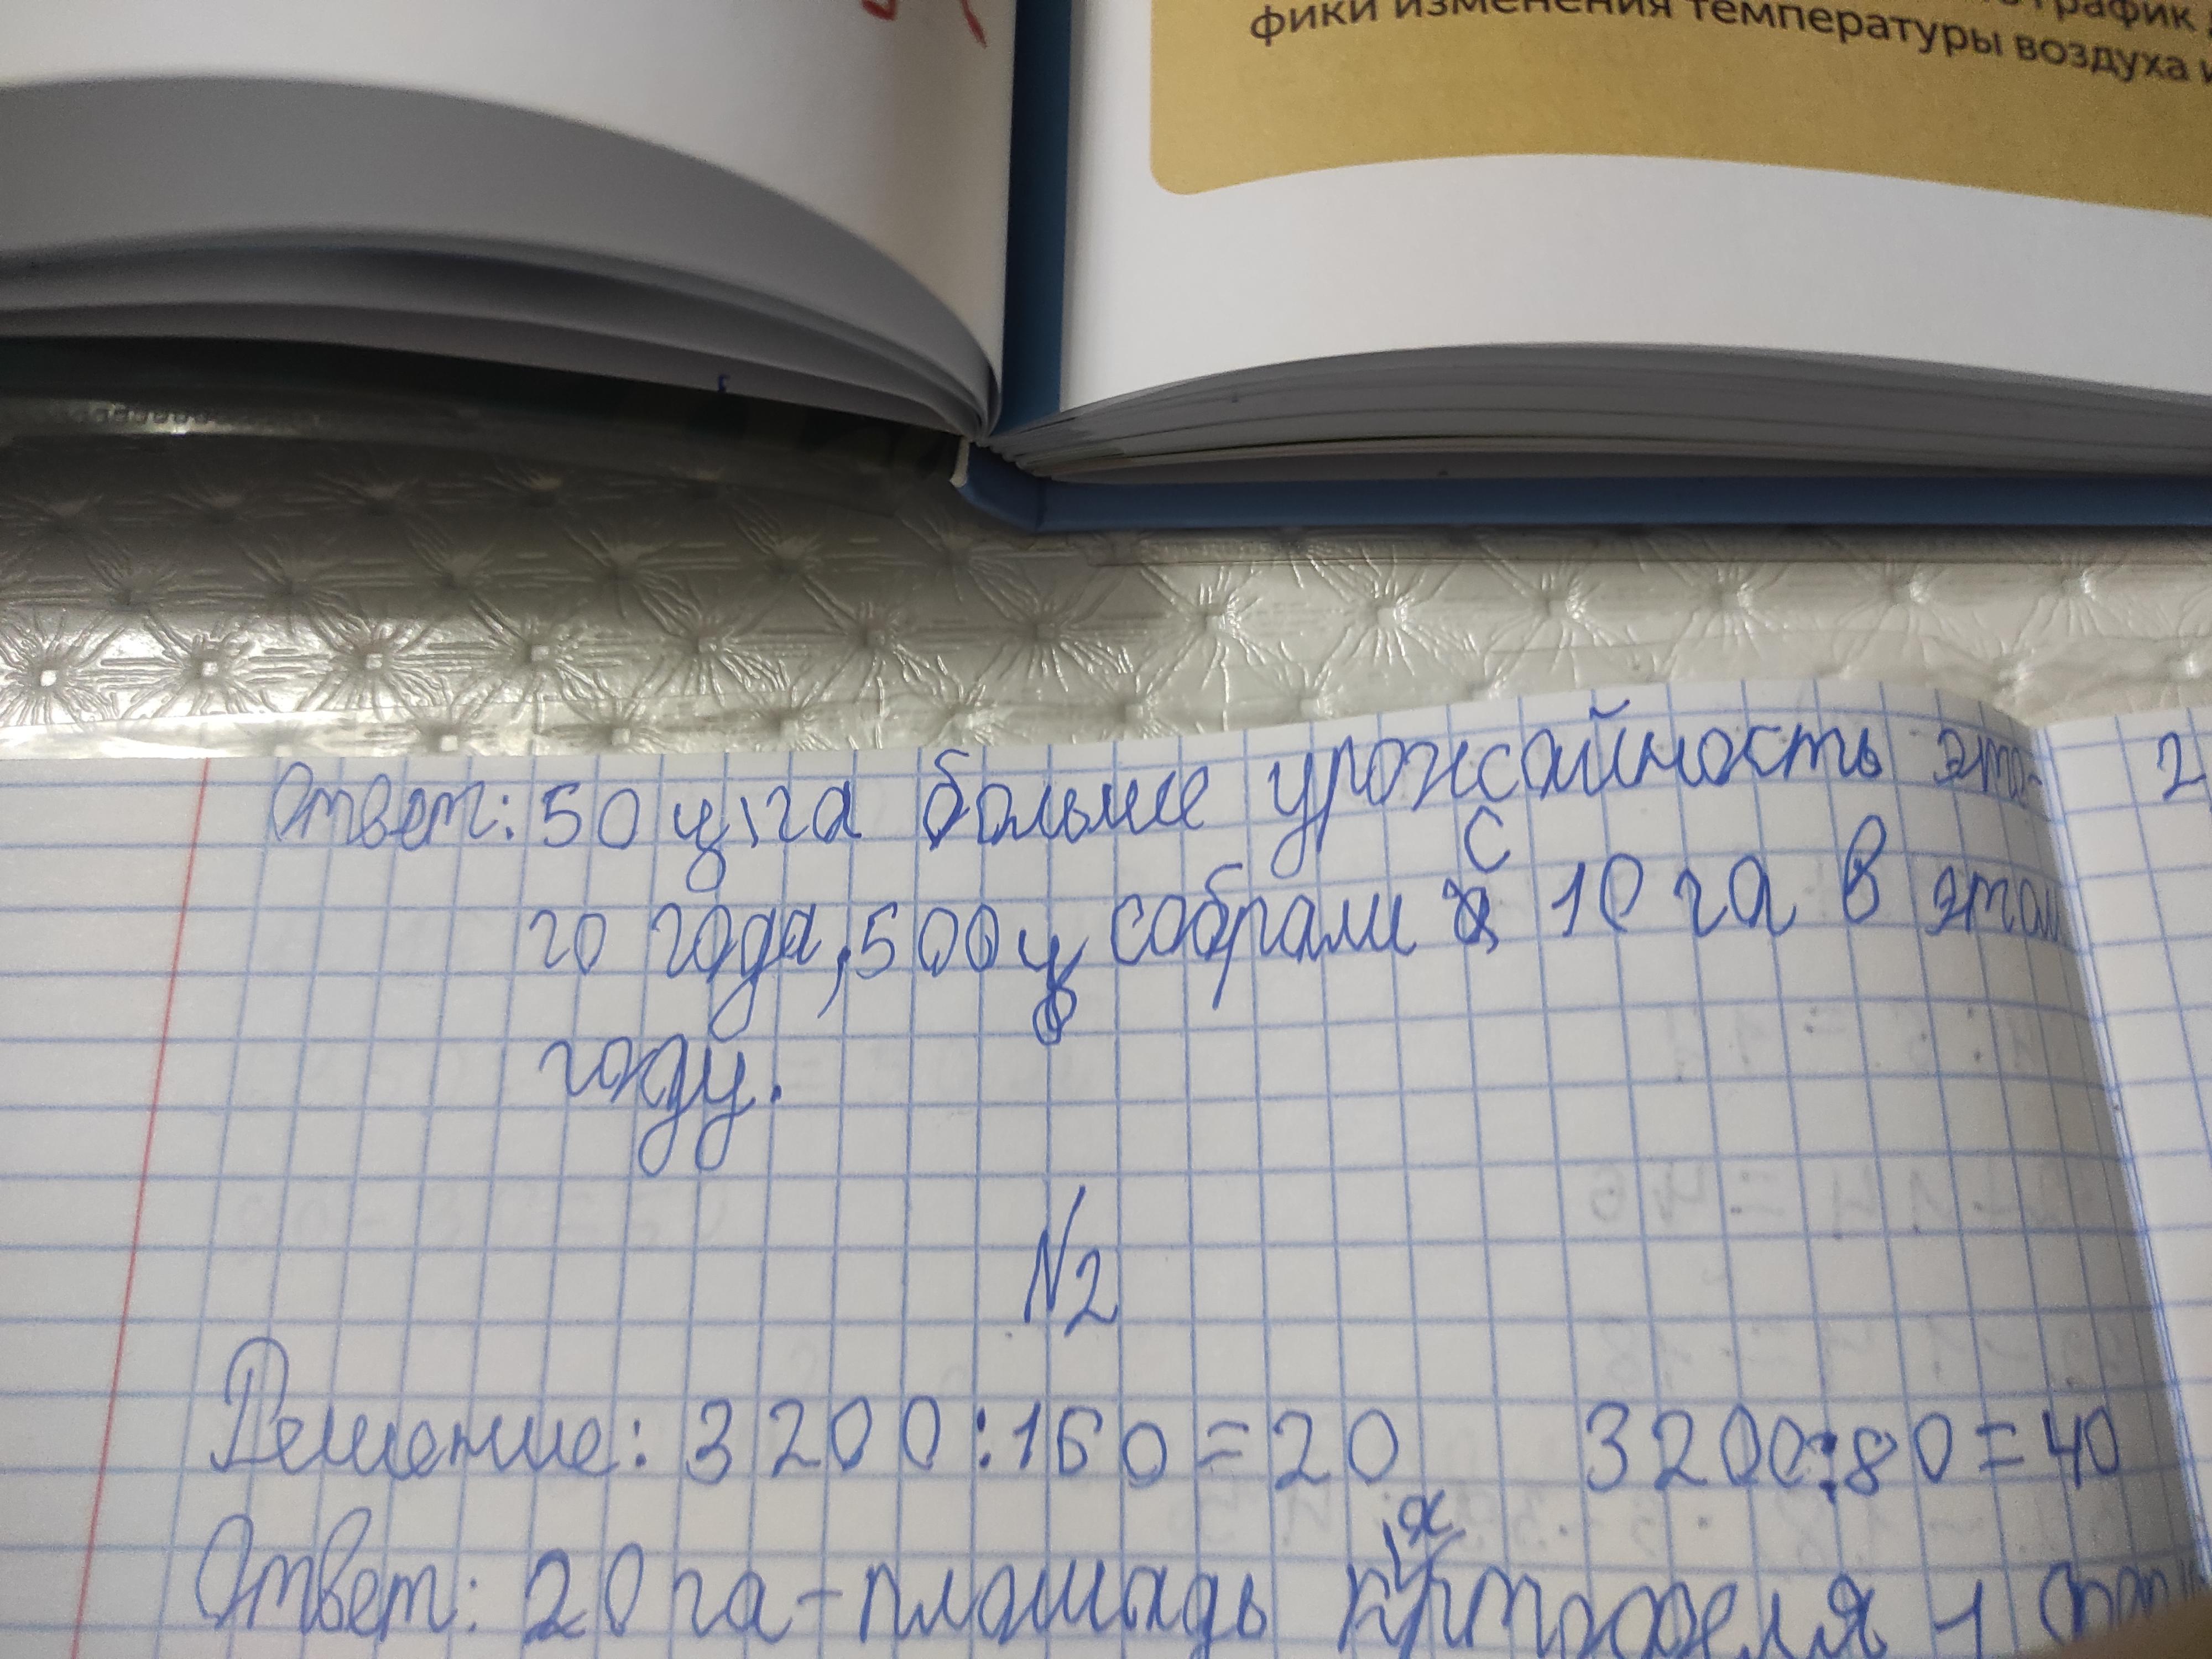 график
фики изменения температуры воздуха и
Ответ: 50 ц\га больше урожайность это-
го года, 500 ц собрали с 10 га в этом
году.
2
N2
Решение: 3200:160=20 3200:80=40
Ответ: 20 га - площадь картофеля 1